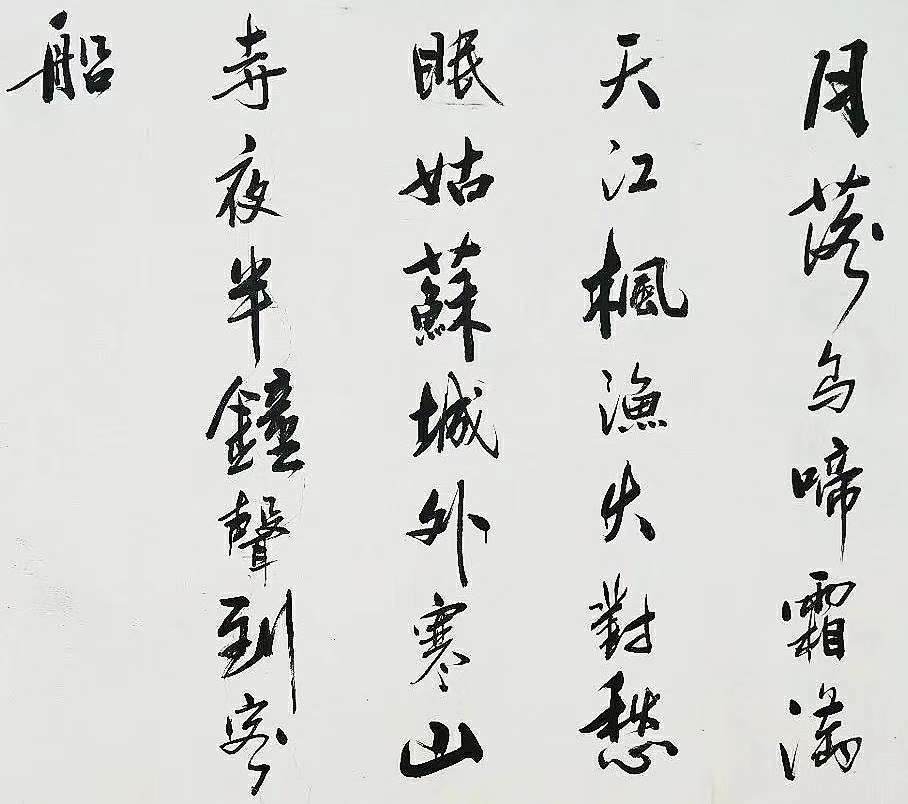 月落烏啼霜滿
天江楓漁火對愁
眠姑蘇城外寒山
寺夜半鐘聲到客
船